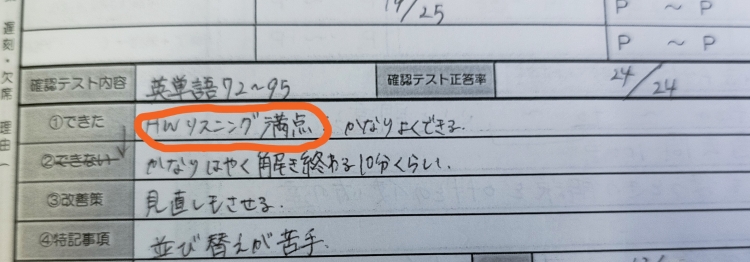 19/25
P ～ P
P ～ P
遅刻・欠席 理由
確認テスト内容 英単語72～95 確認テスト正答率 24/24
①できた HWリスニング満点 かなりよくできる.
②できない かなりはやく解き終わる10分くらい.
③改善策 見直しもさせる.
④特記事項 並び替えが苦手.